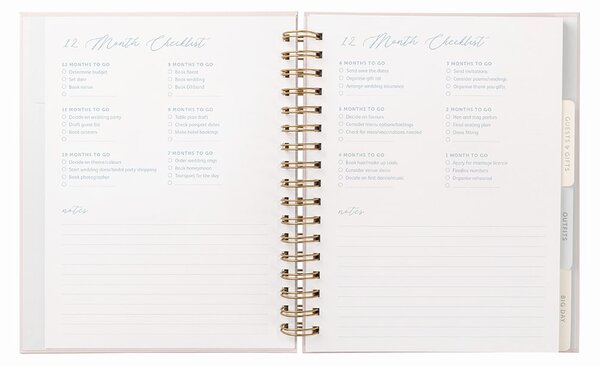 12 Month Checklist
12 MONTHS TO GO
Determine budget
Set date
Book venue
11 MONTHS TO GO
Decide on wedding party
Draft guest list
Book caterers
10 MONTHS TO GO
Decide on theme/colours
Start wedding dress/bridal party shopping
Book photographer
9 MONTHS TO GO
Book florist
Book wedding
Book DJ/band
8 MONTHS TO GO
Table plan draft
Check passport dates
Make hotel bookings
7 MONTHS TO GO
Order wedding rings
Book honeymoon
Transport for the day
notes
12 Month Checklist
6 MONTHS TO GO
Send save the dates
Organise gift list
Arrange wedding insurance
5 MONTHS TO GO
Decide on favours
Consider menu options/tastings
Check for visas/vaccinations needed
4 MONTHS TO GO
Book hair/make up trials
Consider venue decor
Decide on first dance/music
3 MONTHS TO GO
Send invitations
Consider poems/readings
Organise thank you gifts
2 MONTHS TO GO
Hen and stag parties
Final seating plan
Dress fitting
1 MONTH TO GO
Apply for marriage licence
Finalise numbers
Organise rehearsal
notes
GUESTS & GIFTS
OUTFITS
BIG DAY